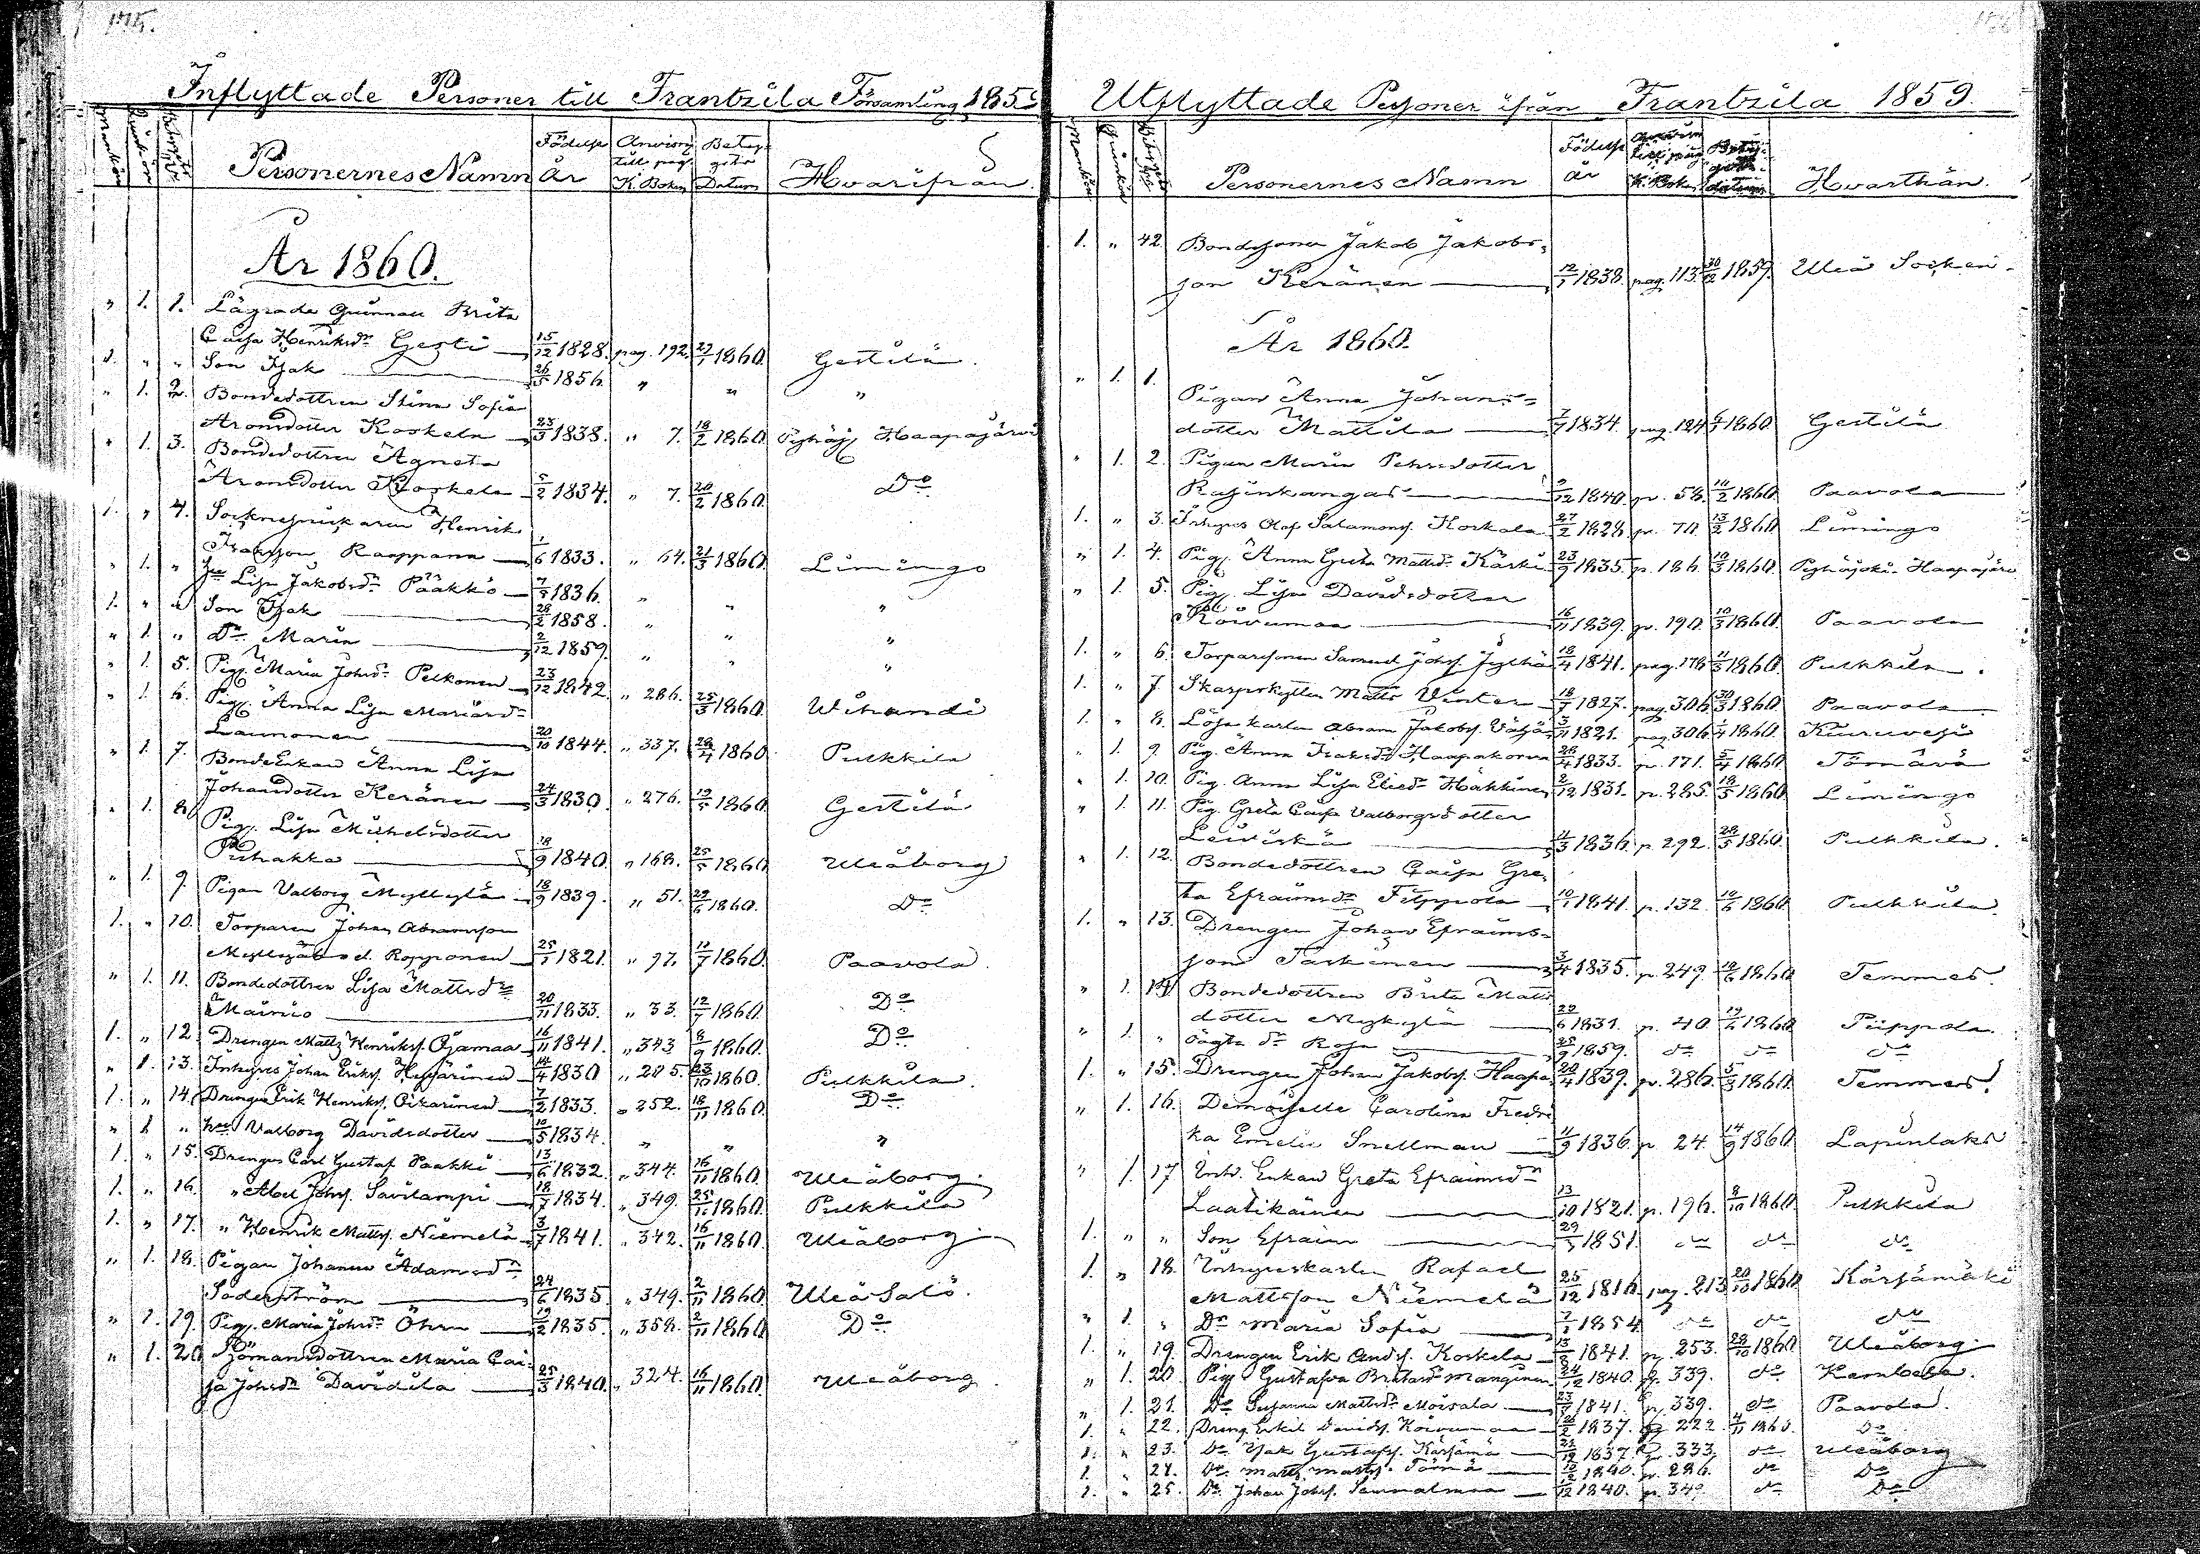 175.
Inflyttade Personer till Frantzila Församling 1859
Mankön
Qvinkön
Betygets No
Personernes Namn
Födelse år
Anvisng till pag. K. Boken
Betygets Datum
Hvarifrån
År 1860.
" 1. 1. Lägrade Quinnan Brita
Caisa Henriksdr Gesti 15/12 1828. pag. 192. 27/1 1860. Gestilä.
1. " " Son Isak 26/5 1856 " " "
" 1. 2. Bondedottren Stina Sofia
Aronsdotter Koskela 23/3 1838. " 7. 18/2 1860. Pyhäj. Haapajärvi
" 1. 3. Bondedottren Agneta
Aronsdotter Koskela 5/2 1834. " 7. 20/2 1860. Do
1. " 4. Socknesnickaren Henrik
Isaksson Raappana 1/6 1833. " 64. 21/3 1860. Limingo
" 1. " hu Lisa Jakobsdr Pääkkö 7/5 1836. " " "
1. " " Son Isak 28/2 1858. " " "
" 1. " Dr Maria 2/12 1859. " " "
" 1. 5. Pig. Maria Johsdr Pelkonen 23/12 1842. " 286. 25/3 1860. Wihandi
" 1. 6. Pig. Anna Lisa Mariasdr
Launonen 20/10 1844. " 337. 28/4 1860. Pulkkila
" 1. 7. BondeEnkan Anna Lisa
Johansdotter Keränen 24/3 1830. " 276. 19/5 1860. Gestilä
" 1. 8. Pig. Lisa Michelsdotter
Puhakka 18/9 1840. " 168. 25/5 1860. Uleåborg
" 1. 9. Pigan Valborg Myllylä 18/9 1839. " 51. 22/6 1860. Do
1. " 10. Torparen Johan Abramsson
Myllylä ed. Ropponen 25/1 1821. " 97. 11/7 1860. Paavola.
" 1. 11. Bondedottren Lisa Mattsdr
Mainio 20/11 1833. " 33. 12/7 1860. Do
1. " 12. Drengen Matts Henriks. Ojamaa 16/11 1841. " 343 8/9 1860. Do
" 1. 13. Inhyses Johan Eriks. Hyvärinen 14/4 1830 " 285. 23/10 1860. Pulkkila.
1. " 14. Drengen Erik Henriks. Oikarinen 7/2 1833. " 252. 18/11 1860. Do
" 1. " hu Valborg Davidsdotter 10/5 1834. " " "
1. " 15. Drengen Carl Gustaf Paakki 13/6 1832. " 344. 16/11 1860. Uleåborg.
1. " 16. " Abel Johs. Savilampi 18/7 1834. " 349. 25/11 1860. Pulkkila
1. " 17. " Henrik Matts. Niemelä 3/7 1841. " 342. 16/11 1860. Uleåborg
" 1. 18. Pigan Johanna Adamsdr
Söderström 24/6 1835. " 349. 2/11 1860. UleåSalo.
" 1. 19. Pig. Maria Johsdr Öhrn 19/2 1835. " 358. 2/11 1860. Do
" 1. 20. Sjömansdottren Maria Cai-
sa Johsdr Davidila 25/3 1840. " 324. 16/11 1860. Uleåborg.
Utflyttade Personer ifrån Frantzila 1859.
Mankön
Qvinkön
Betygets No
Personernes Namn
Födelse år
Anvisn till pag K. Boken
Betygets datum
Hvarthän.
1. " 42. Bondesonen Jakob Jakobs-
son Keränen 12/7 1838. pag. 113. 30/12 1859. Uleå Socken.
År 1860.
" 1. 1. Pigan Anna Johans-
dotter Mattila 7/7 1834. pag. 124. 6/1 1860. Gestilä
" 1. 2. Pigan Maria Pehrsdotter
Rajinkangas 9/12 1840. p. 58. 11/2 1860. Paavola
1. " 3. Inhyses Olof Salamons. Koskela 27/2 1828. p. 70. 13/2 1860. Limingo
" 1. 4. Pig. Anna Greta Mattsdr Kärki 23/9 1835. p. 186. 10/3 1860. Pyhäjoki Haapajärvi
" 1. 5. Pig. Lisa Davidsdotter
Koivumaa 16/11 1839. p. 190. 10/3 1860. Paavola
1. " 6. Torparesonen Samuel Johs. Jylhä 18/4 1841. pag. 178 11/3 1860. Pulkkila.
1. " 7. Skarpskytten Matts Winter 18/7 1827. pag. 306 30/3 1860. Paavola
1. " 8. Lösa karlen Abram Jakobs. Väljä 3/11 1821. pag. 306 1/4 1860. Kiuruvesi
" 1. 9. Pig. Anna Isaksdr Haapakorva 26/4 1833. p. 171. 5/4 1860. Törnävä
" 1. 10. Pig. Anna Lisa Eliedr Häkkinen 2/12 1831. p. 285. 18/5 1860. Limingo
" 1. 11. Pig. Greta Caisa Valborgsdotter
Leiviskä 11/3 1836. p. 292. 28/5 1860. Pulkkila.
" 1. 12. Bondedottren Caisa Gre-
ta Efraimsdr Filppola 10/1 1841. p. 132. 10/6 1860. Pulkkila.
1. " 13. Drengen Johan Efraims-
son Taskinen 3/4 1835. p. 249. 10/6 1860. Temmes
" 1. 14. Bondedottren Brita Matts
dotter Nykylä 22/6 1831. p. 40. 19/6 1860. Piippola.
" 1. " oägta dr Rosa 25/9 1859. do do do
1. " 15. Drengen Johan Jakobs. Haapa 20/4 1839. p. 286. 5/8 1860. Temmes.
" 1. 16. Demoiselle Carolina Fredri
ka Emelie Snellman 11/9 1836. p. 24. 14/9 1860. Lapinlaks
" 1. 17 Inh. Enkan Greta Efraimsdr
Laatikainen 13/10 1821. p. 196. 8/10 1860. Pulkkila
1. " " Son Efraim 29/3 1851. do do do
1. " 18. Inhyseskarlen Rafael
Mattsson Niemelä 25/12 1816. pag. 213 20/10 1860. Kärsämäki
" 1. " Dr Maria Sofia 7/1 1854 do do do
1. " 19. Drengen Erik Ands. Koskela 13/8 1841. p. 253. 28/10 1860. Uleåborg.
" 1. 20. Pig. Gustafva Britasdr Manginen 24/12 1840. p. 339. do Kembele.
" 1. 21. Do Susanna Mattsdr Moisala 23/7 1841. p. 339. do Paavola.
1. " 22. Dreng Erkil Davids. Koivumaa 26/2 1837. p. 222. 4/11 1860. Do
1. " 23. Do Isak Gustafs. Kärsämä 23/12 1837. p. 333. do Uleåborg
1. " 24. Do Matts Matts. Törmä 10/12 1840. p. 286. do Do
1. " 25. Do Johan Johs. Saunalmaa /12 1840. p. 349. do Do